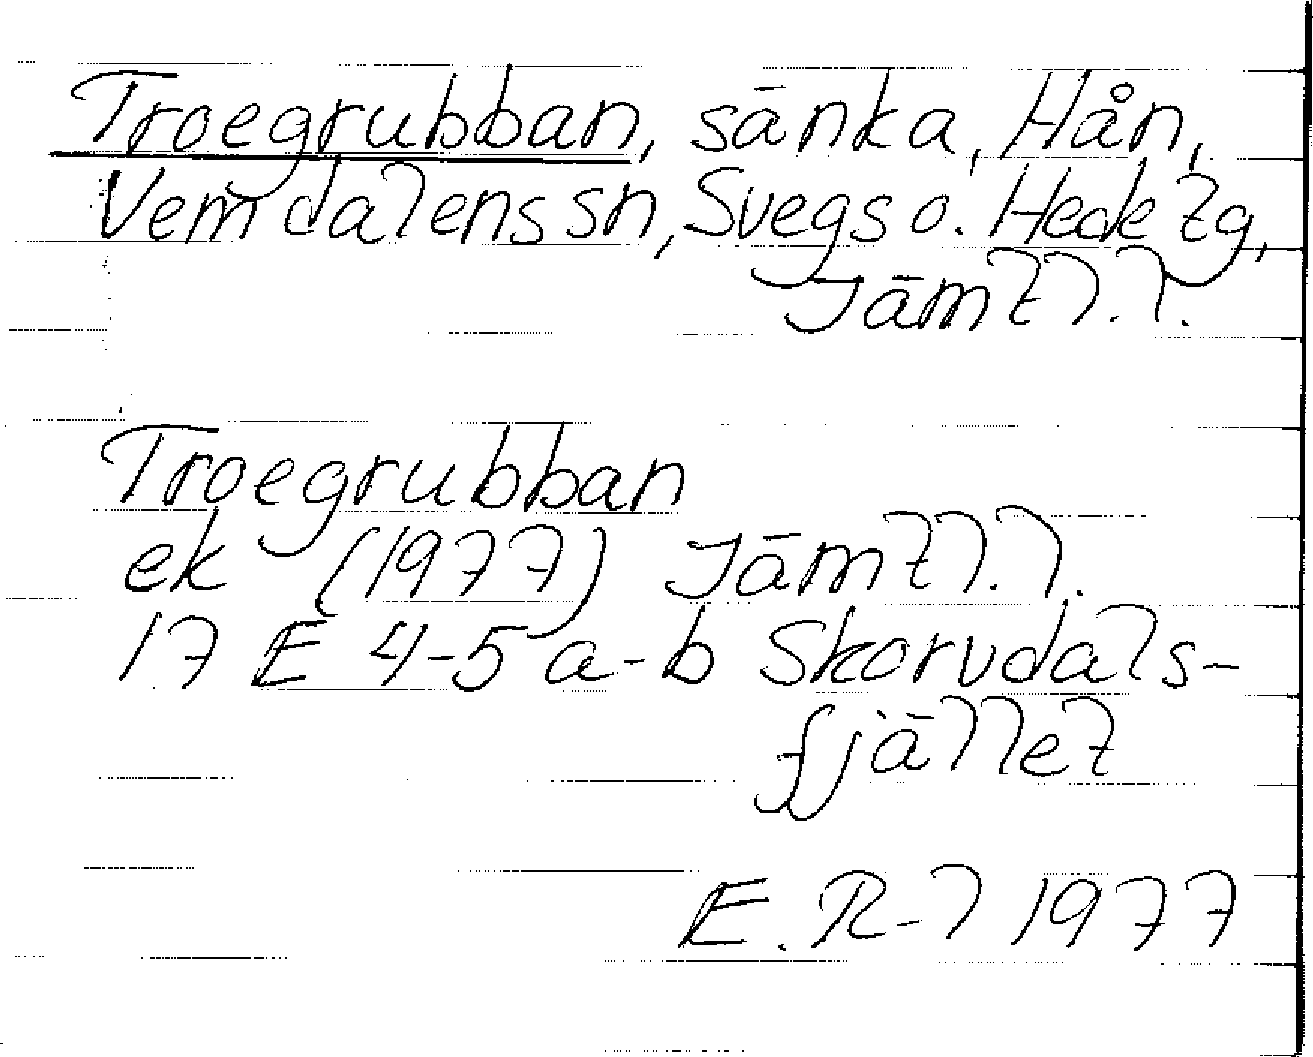 Troegrubban, sänka, Hån,
Vemdalens sn, Svegs o. Hede tg,
Jämtl. l.
Troegrubban
ek (1977) Jämtl. l.
17 E 4-5 a-b Skorvdals-
fjället
E. R-l 1977